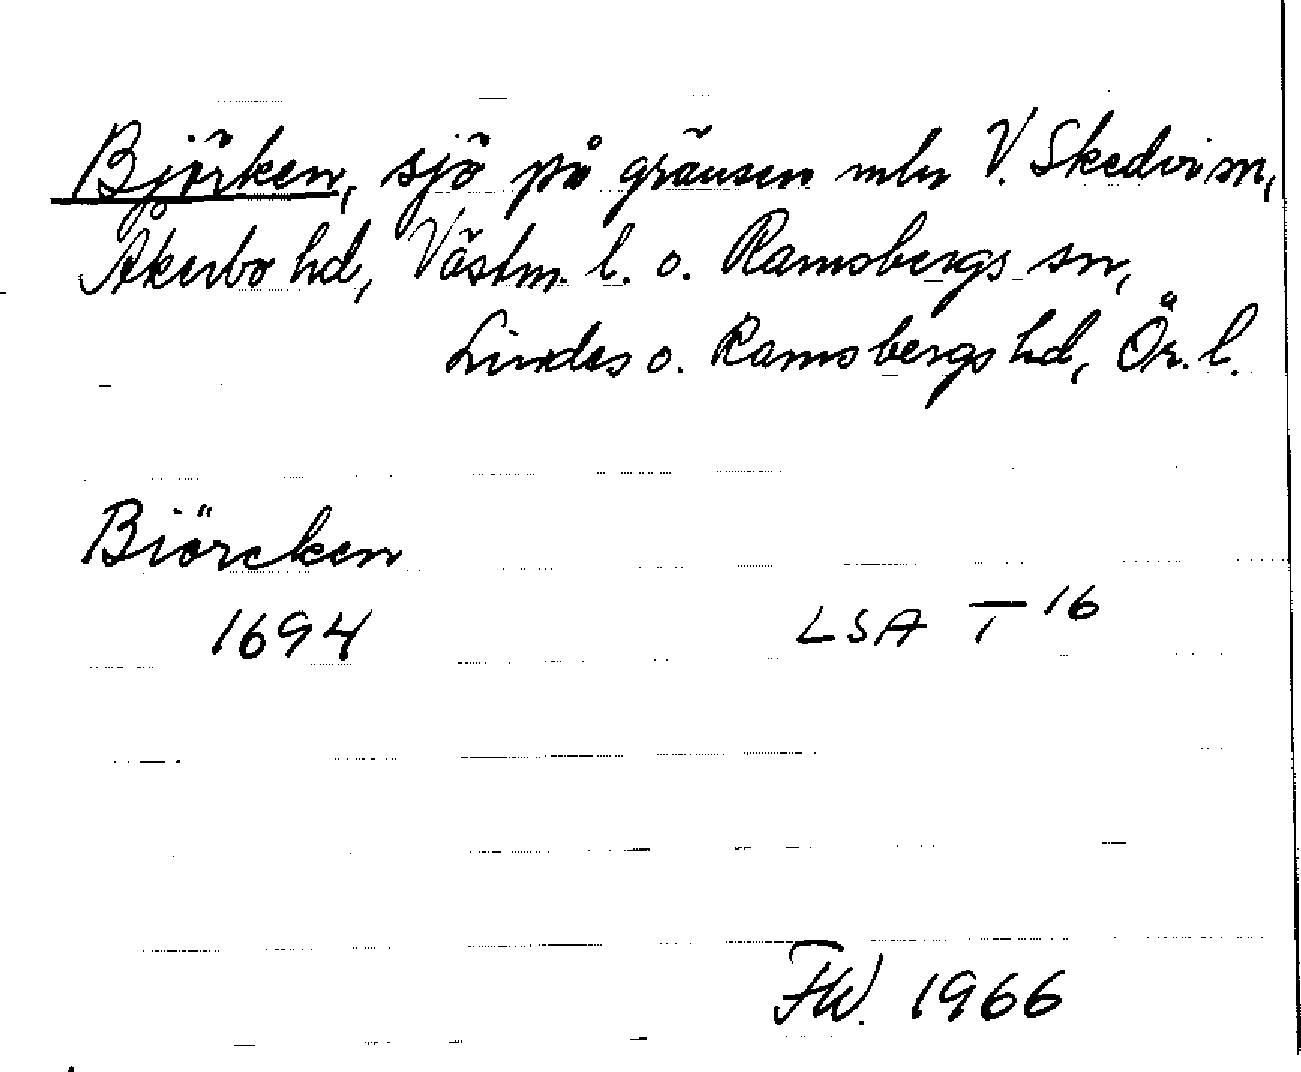 Björken, sjö på gränsen mln V. Skedvi sn,
Åkerbo hd, Västm. l. o. Ramsbergs sn,
Lindes o. Ramsbergs hd, Ör. l.
Biörcken
1694 LSA T 16
1
FW. 1966